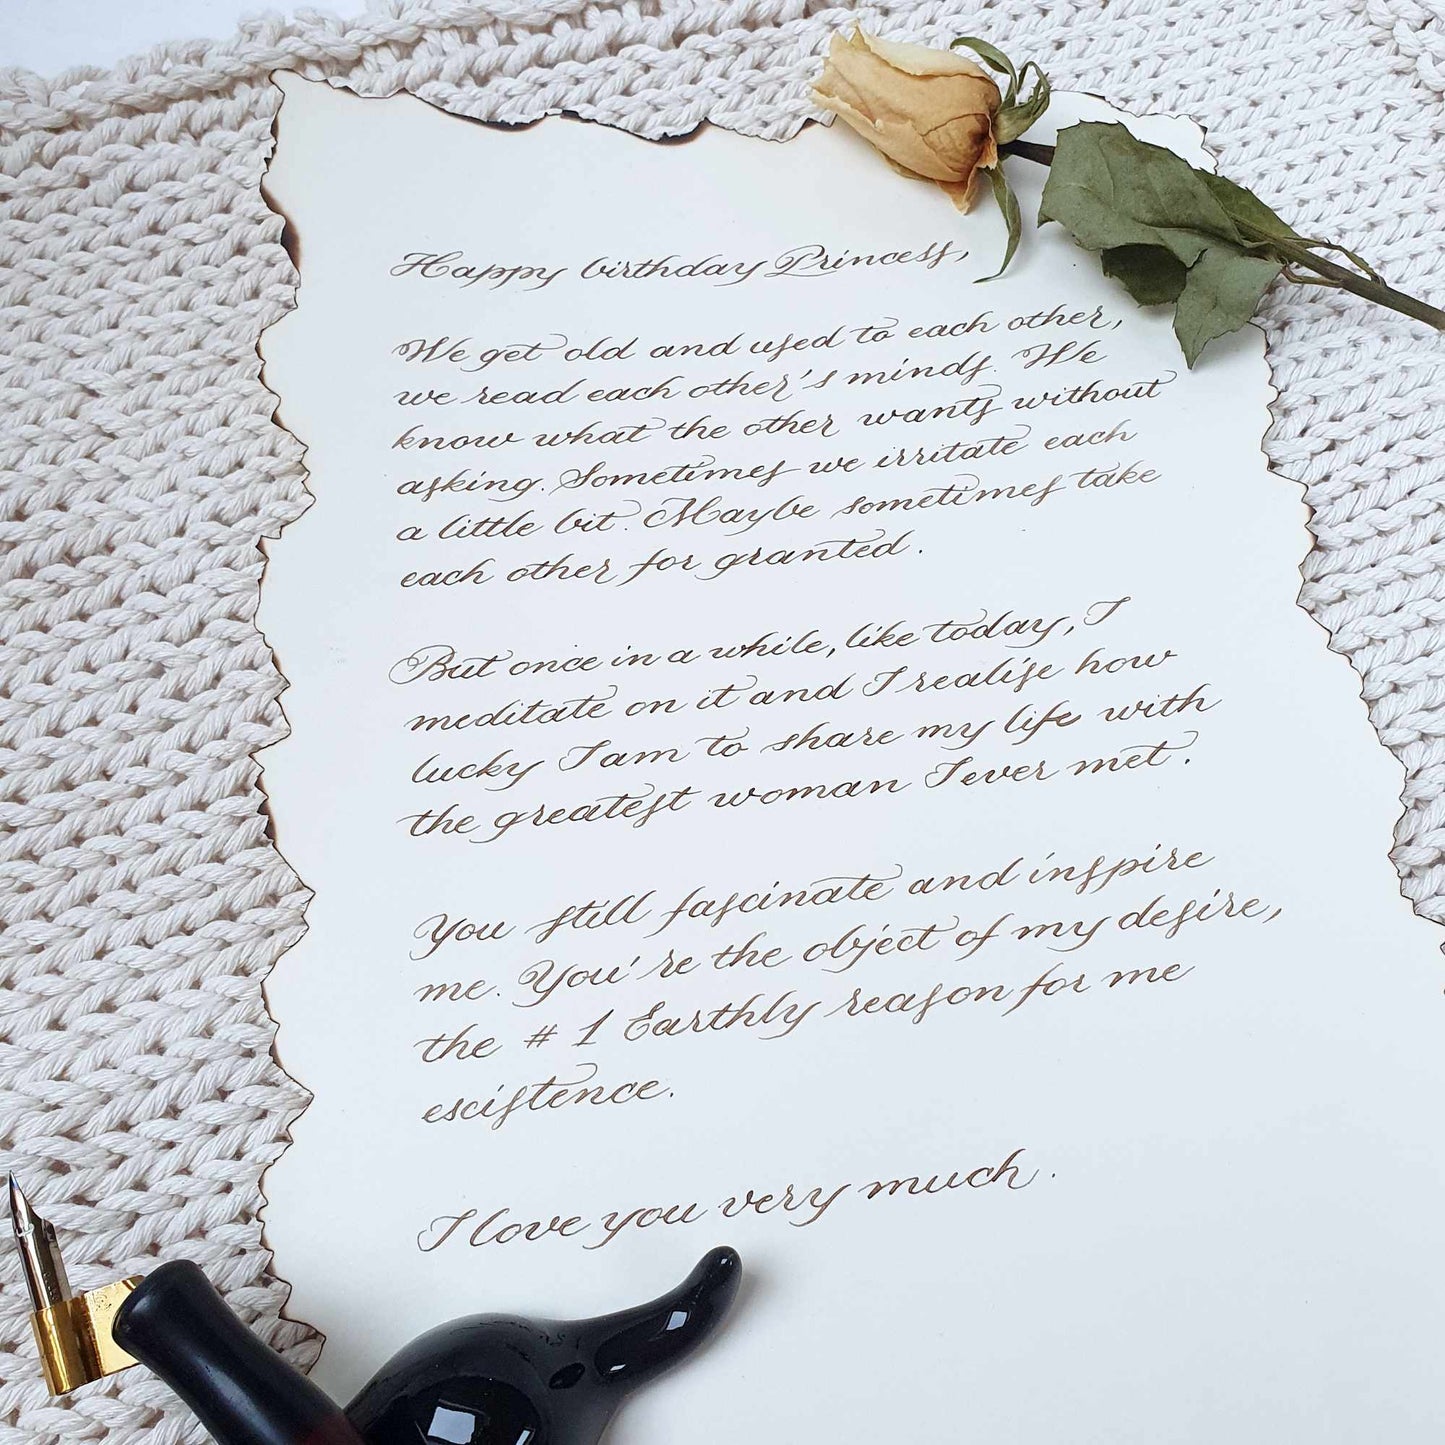 Happy birthday Princess,
We get old and used to each other,
we read each other's minds. We
know what the other wants without
asking. Sometimes we irritate each
a little bit. Maybe sometimes take
each other for granted.
But once in a while, like today, I
meditate on it and I realise how
lucky I am to share my life with
the greatest woman I ever met.
You still fascinate and inspire
me. You're the object of my desire,
the # 1 Earthly reason for me
existence.
I love you very much.